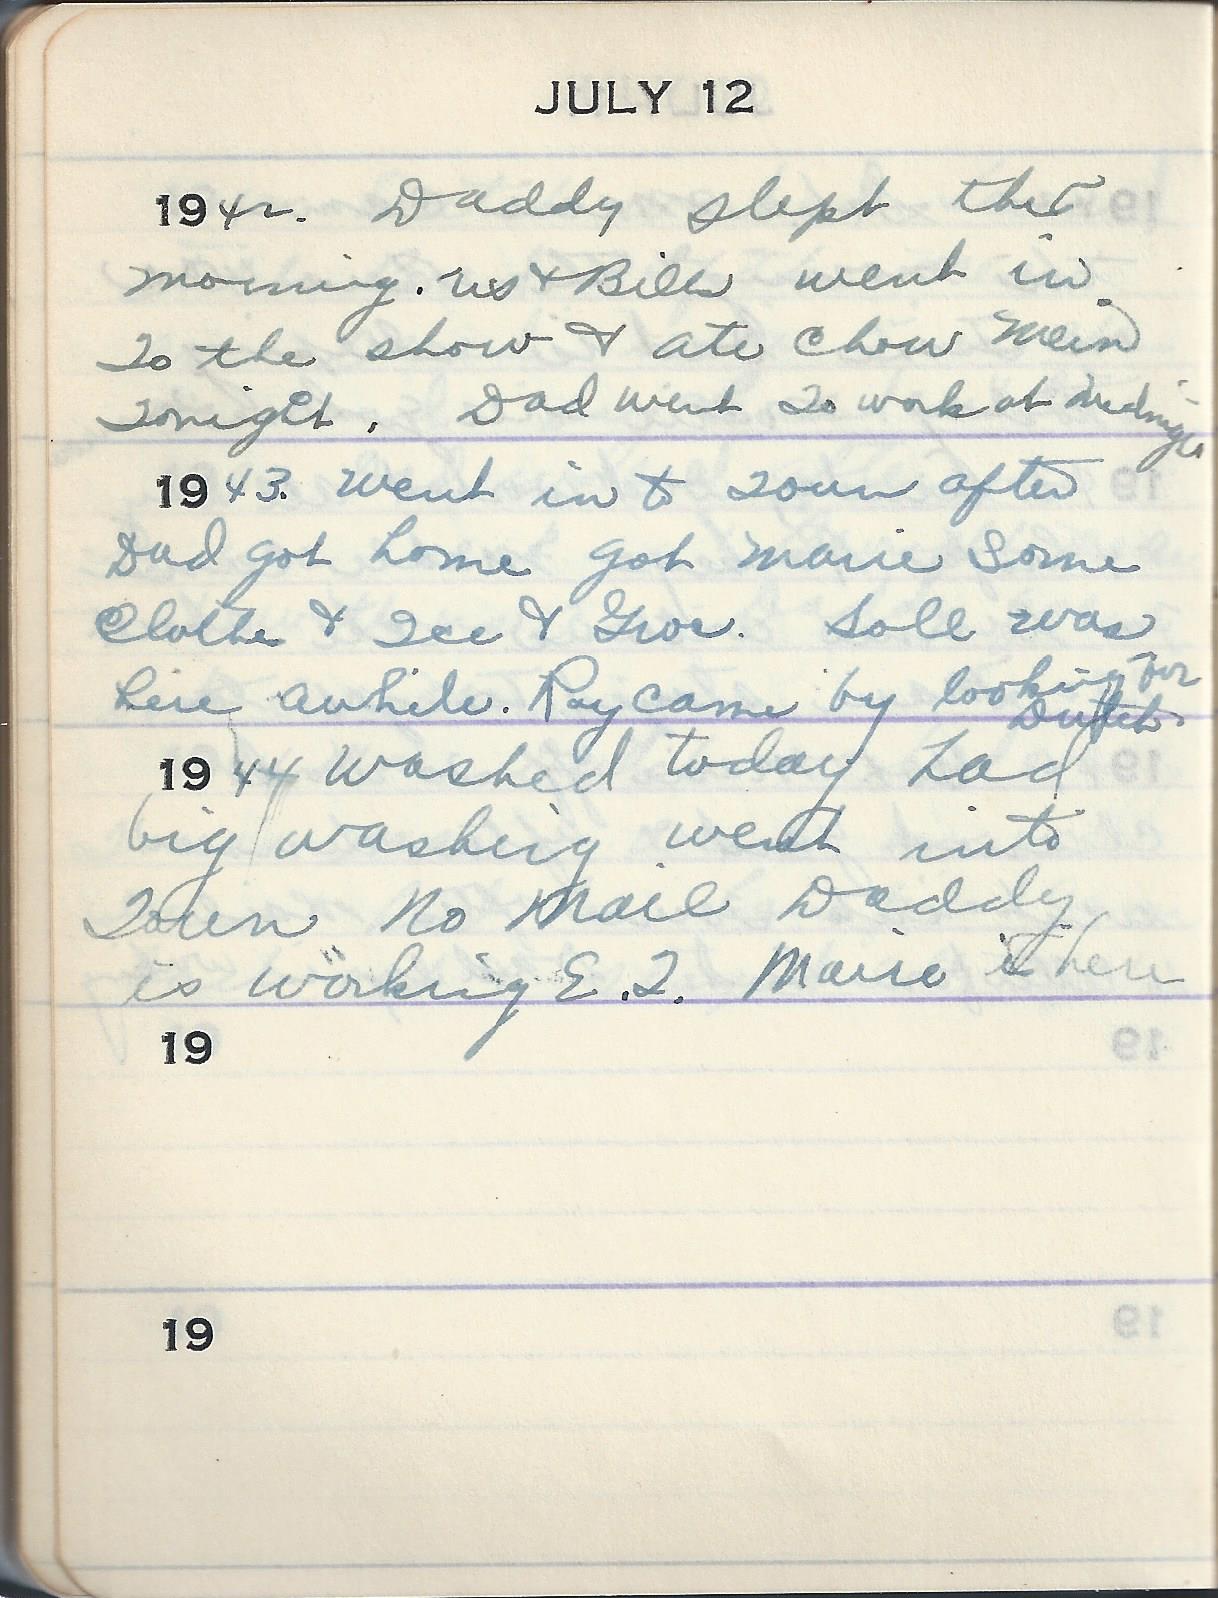 JULY 12
1942. Daddy slept this
morning. us & Bill went in
to the show & ate chow mein
tonight. Dad went to work at
1943. Went in to town after
Dad got home got Marie some
Clothes & Ice & Groc. was
here awhile. Ray came by looking for
Dutch
1944 Washed today had
big washing went into
Town No Mail Daddy
is working E.T. Marie is here
19
19